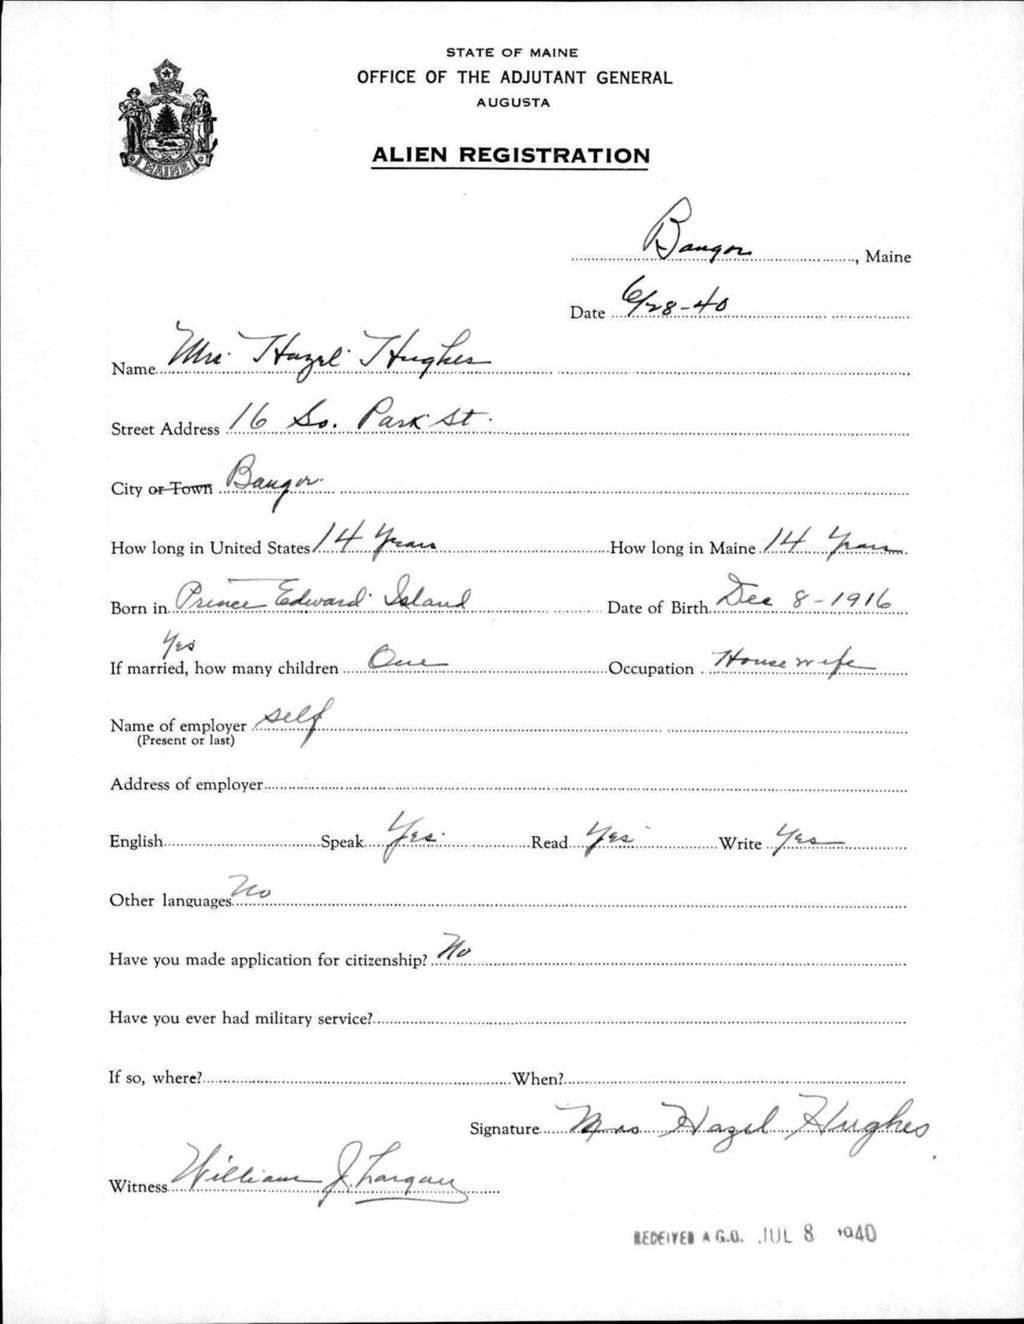 STATE OF MAINE
OFFICE OF THE ADJUTANT GENERAL
AUGUSTA
ALIEN REGISTRATION
MAINE
Bangor, Maine
Date 6/28-40
Name Mrs. Hazel Hughes
Street Address 16 So. Park St.
City or Town Bangor
How long in United States 14 Years How long in Maine 14 Years
Born in Prince Edward Island Date of Birth Dec 8-1916
Yes
If married, how many children One Occupation Housewife
Name of employer self
(Present or last)
Address of employer
English Speak Yes. Read Yes Write Yes
Other languages No
Have you made application for citizenship? No
Have you ever had military service?
If so, where? When?
Signature Mrs Hazel Hughes
Witness William J.
RECEIVED A.G.O. JUL 8 1940